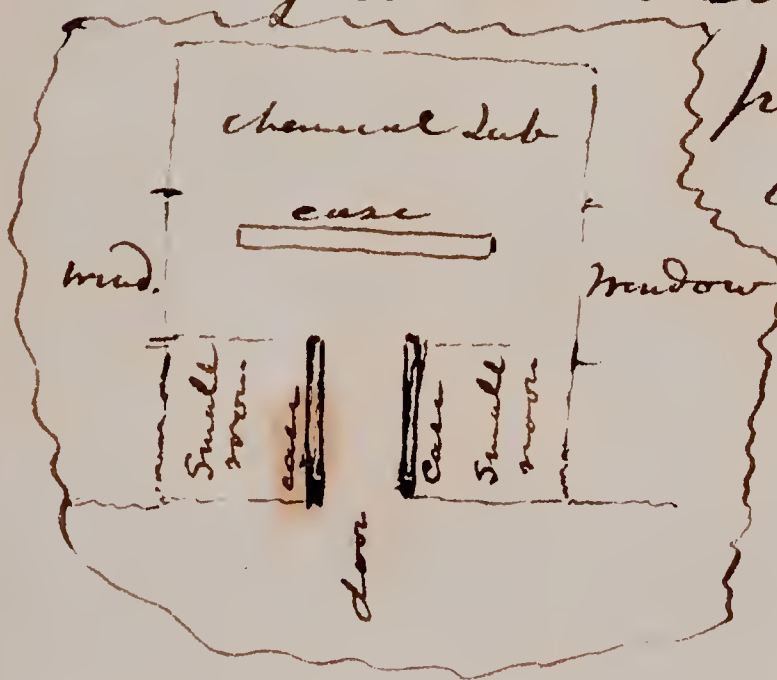 Chemical Lab
case
wind.
Window
Small
room
case
Case
Small
room
door